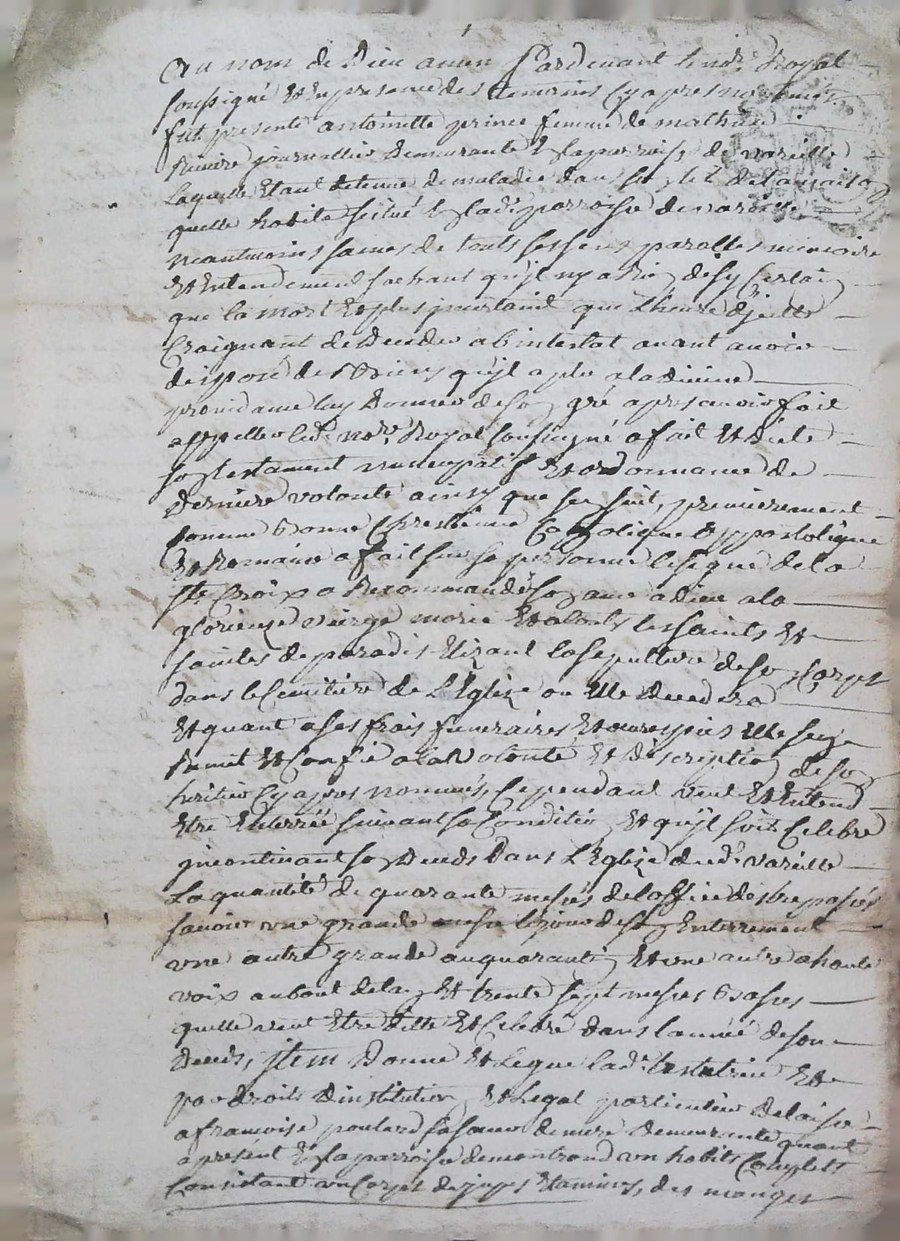 Au nom de Dieu amen Pardevant le not. Royal
soussigné Et En presence des temoins cy apres nommes
fut presente antoinette prince femme de mathieu
journallier demeurante En la parroisse de vareille
Laquelle Etant detenue de maladie dans son lit de la maison
quelle habite situé En lad. parroisse de vareille
neantmoins saines de touts ses sens parolles memoire
Et Entendement sachant quyl ny a Rien de sy Certain
que la mort Et plus jncertaine que Lheure dycelle
Craignant de deceder abintestat avant avoir
disposé des Biens quyl a plu a la divine
providance luy Donner de son gré apres avoir fait
appeller led. not. Royal soussigné a fait Et dicte
son testament nuncupatif Et ordonnance de
derniere volonté ainsy que sensuit, premierement
comme bonne Chrestienne Catholique appostolique
Et Romaine a fait sur sa personne le signe de la
ste Croix a Recommandé son ame a dieu a la
glorieuse vierge marie Et a touts les saints Et
saintes de paradis Elizant la sepulture de son Corps
dans le Cemitiere de LEglize ou Elle decedera
Et quant a ses frais funeraires Et œuvres pies Elle sen
Remet Et Confie a la volonté Et discription de son
heritier Cy apres nommés, Cependant veut Et Entend
Etre Enterrée suivant sa Condition, Et quyl soit Celebré
jncontinant son deceds dans LEglize dud. vareille
La quantité de quarante messes de loffice des trepassés
savoir une grande messe le jour de son Enterrement
une autre grande au quarantin, Et une autre a haute
voix au bout de lan, Et trente sept messes basses
quelle veut Etre ditte Et Celebré dans lannée de son
deceds, jtem Donne Et Legue lad. testatrice Et
par droits dinstitution Et Legat particulier delaisse
a francoise poulard sa sœur de mere demeurante quant
a present En la parroisse de montrond un habits Complets
Consistant un Corps de juppes Etamines, des manges